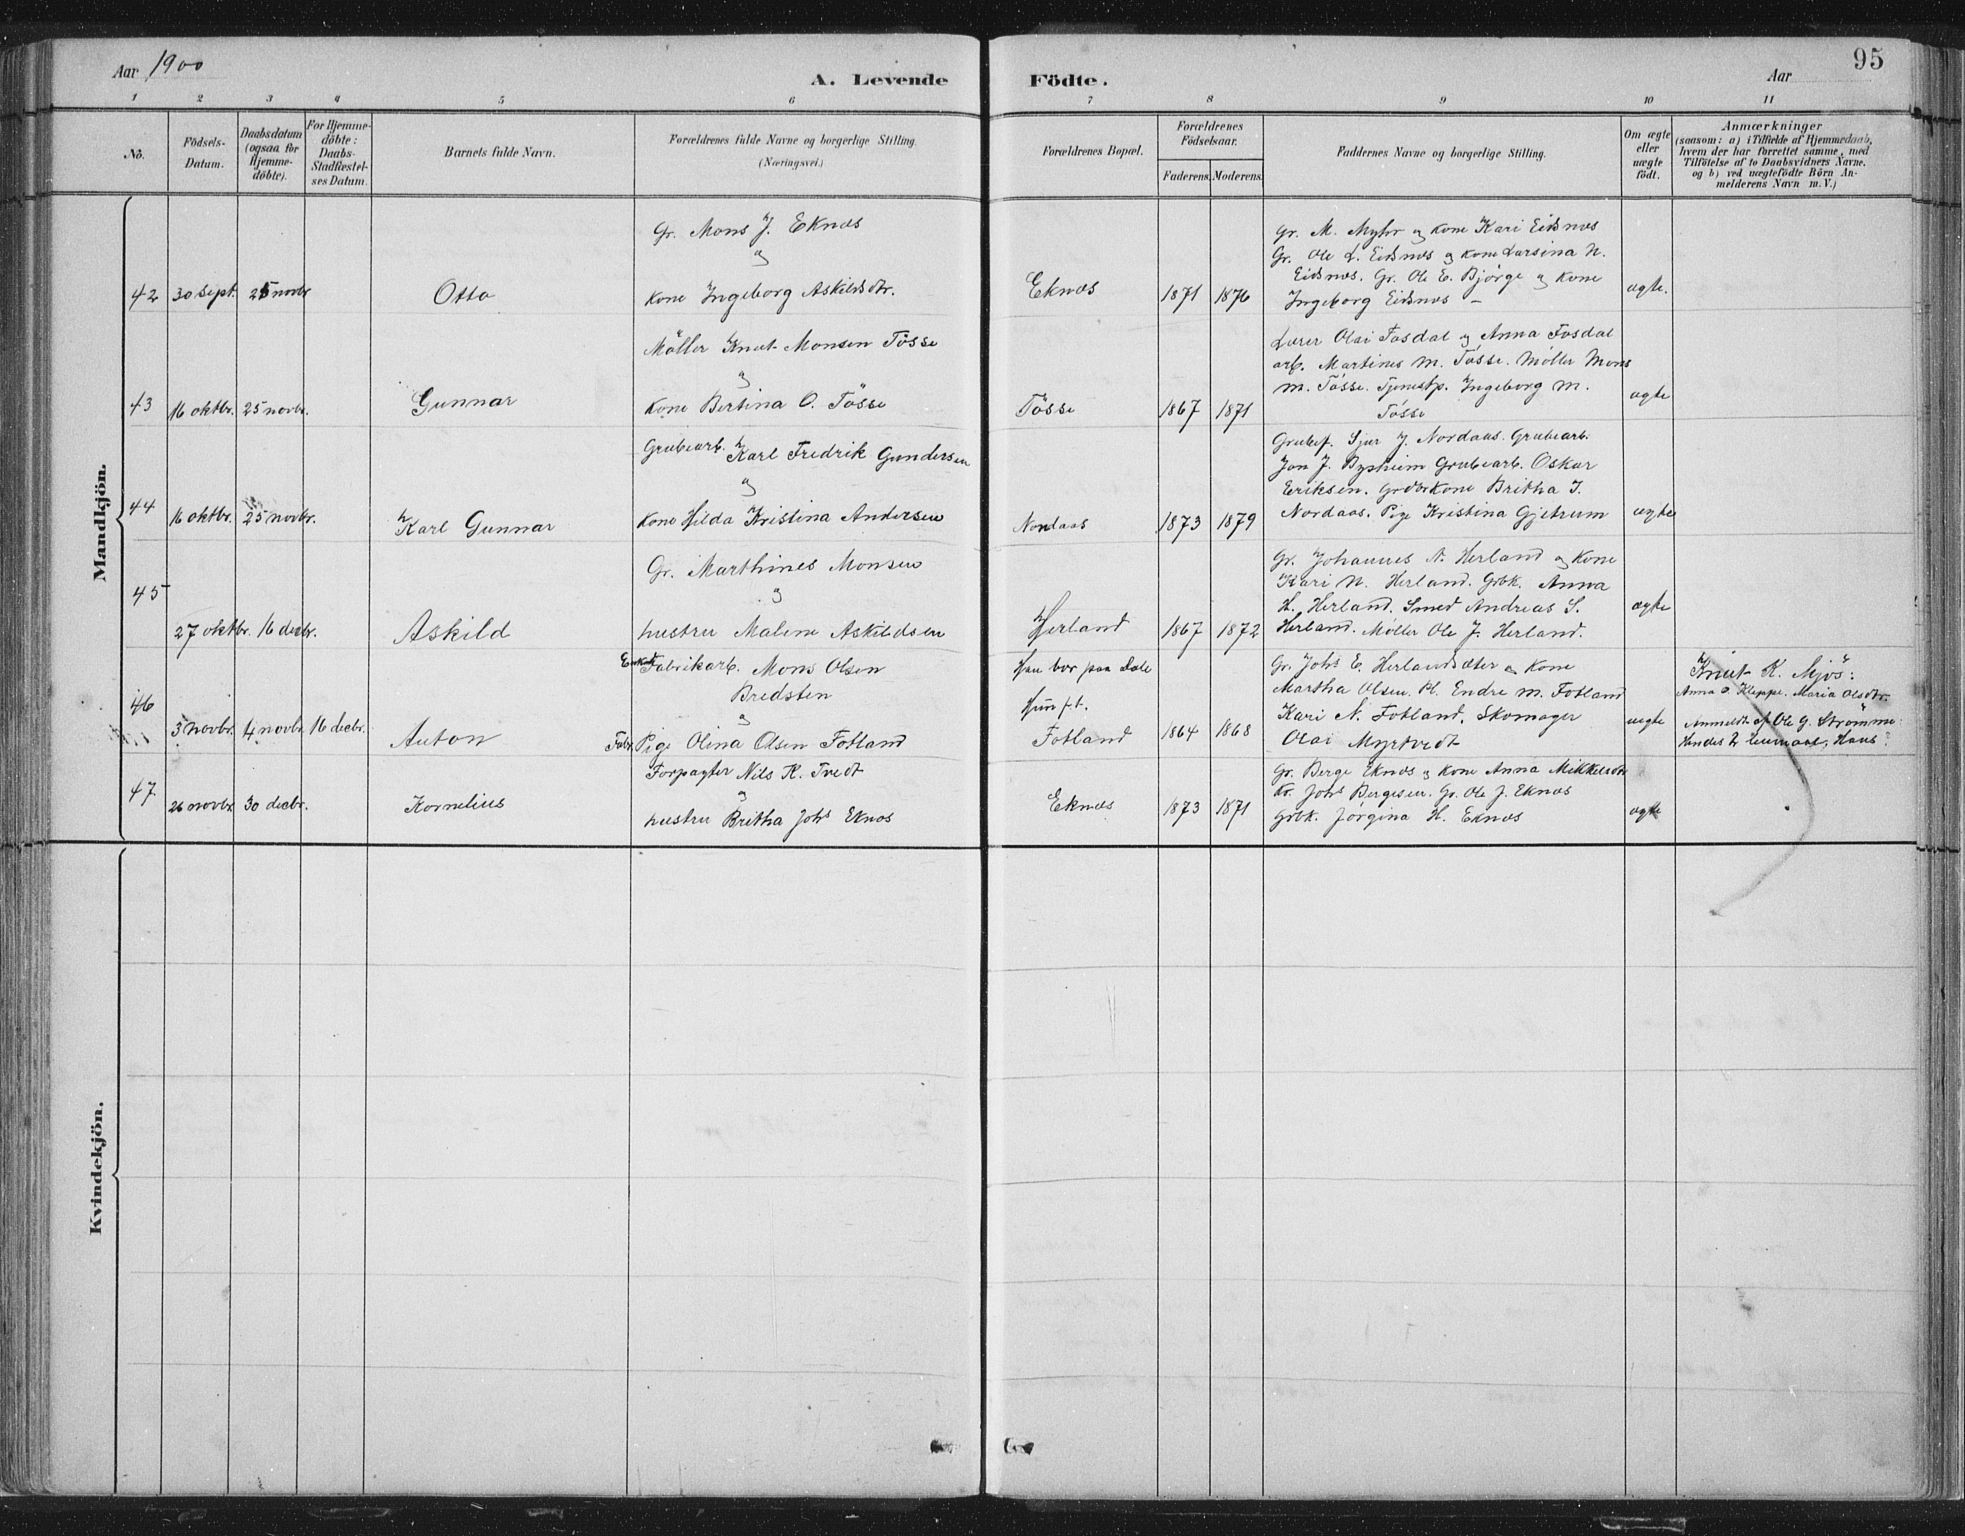 Aar 1900
A. Levende
Födte.
Aar
95
1 2 3 4 5 6 7 8 9 10 11
No.
Födsels-
Datum.
Daabsdatum
(ogsaa for
Hjemme-
döbte).
For Hjemme-
döbte:
Daabs-
Stadfæstel-
ses Datum.
Barnets fulde Navn.
Forældrenes fulde Navne og borgerlige Stilling.
(Næringsvei.)
Forældrenes Bopæl.
Forældrenes
Födselsaar.
Faderens. Moderens.
Faddernes Navne og borgerlige Stilling.
Om ægte
eller
uægte
födt.
Anmærkninger
(saasom: a) i Tilfælde af Hjemmedaab,
hvem der har forrettet samme, med
Tilföielse af to Daabsvidners Navne,
og b) ved uægtefödte Börn An-
melderens Navn m. V.)
Mandkjön.
42 30 sept. 25 novbr Otto
Gr. Mons J. Eknæs
og
kone Ingeborg Askildsdtr.
Eknæs 1871 1876
Gr. M. Myhr og kone Kari Eidsnæs
Gr. Ole L. Eidsnæs og kone Larsina N.
Eidsnæs. Gr. Ole E. Bjørge og kone
Ingeborg Eidsnæs –
ægte.
43 16 oktbr. 25 novbr. Gunnar
Möller Knut Monsen Tösse
og
kone Bertina O. Tösse
Tösse 1867 1871
Lærer Olai Fosdal og Anna Fosdal
arb. Martines M. Tösse. Möller Mons
M. Tösse. Tjenestp. Ingeborg M.
Tösse
ægte
44 16 oktbr. 25 novbr. Karl Gunnar
Grubearb. Karl Fredrik Gundersen
og
kone Hilda Kristina Andersen
Nordaas 1873 1879
Grubef. Sjur J. Nordaas. Grubearb.
Jon J. Bysheim Grubearb. Oskar
Eriksen. Grdbrkone Britha I.
Nordaas. Pige Kristina Gjetrum
ægte
45 27 oktbr. 16 decbr. Askild
Gr. Marthines Monsen
og
hustru Malene Askildsen
Herland 1867 1872
Gr. Johannes N. Herland og kone
Kari N. Herland. Grbk. Anna
H. Herland. Smed Andreas S.
Herland. Möller Ole J. Herland.
ægte
46 3 novbr. 4 novbr. 16 decbr. Anton
Fabrikarb. Mons Olsen
Bredsten
og
Fabr. Pige Olina Olsen Fotland
Han bor paa Dale
Hun f.t.
Fotland 1864 1868
Gr. Johs E. Herlandsæter og kone
Martha Olsen. Pl. Endre M. Fotland
Kari N. Fotland. Skomager
Olai Myrtvedt
uægte
Knut K. Mjös:
Anna O. Kleppe. Maria Olsdtr.
Anmeldt af Ole G. Strömme.
Hendes
47 26 novbr. 30 decbr. Kornelius
Forpagter Nils K. Tvedt
og
hustru Britha Johs Eknæs
Eknæs 1873 1871
Gr. Berge Eknæs og kone Anna Mikkelsdtr
Johs Bergesen. Gr. Ole J. Eknæs
Grbk. Jørgina H. Eknæs
ægte
Kvindekjön.